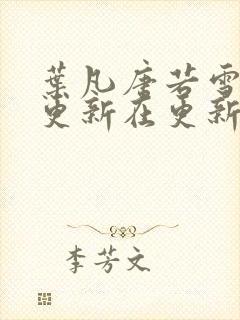 葉凡唐若雪
更新在更新
李芳文